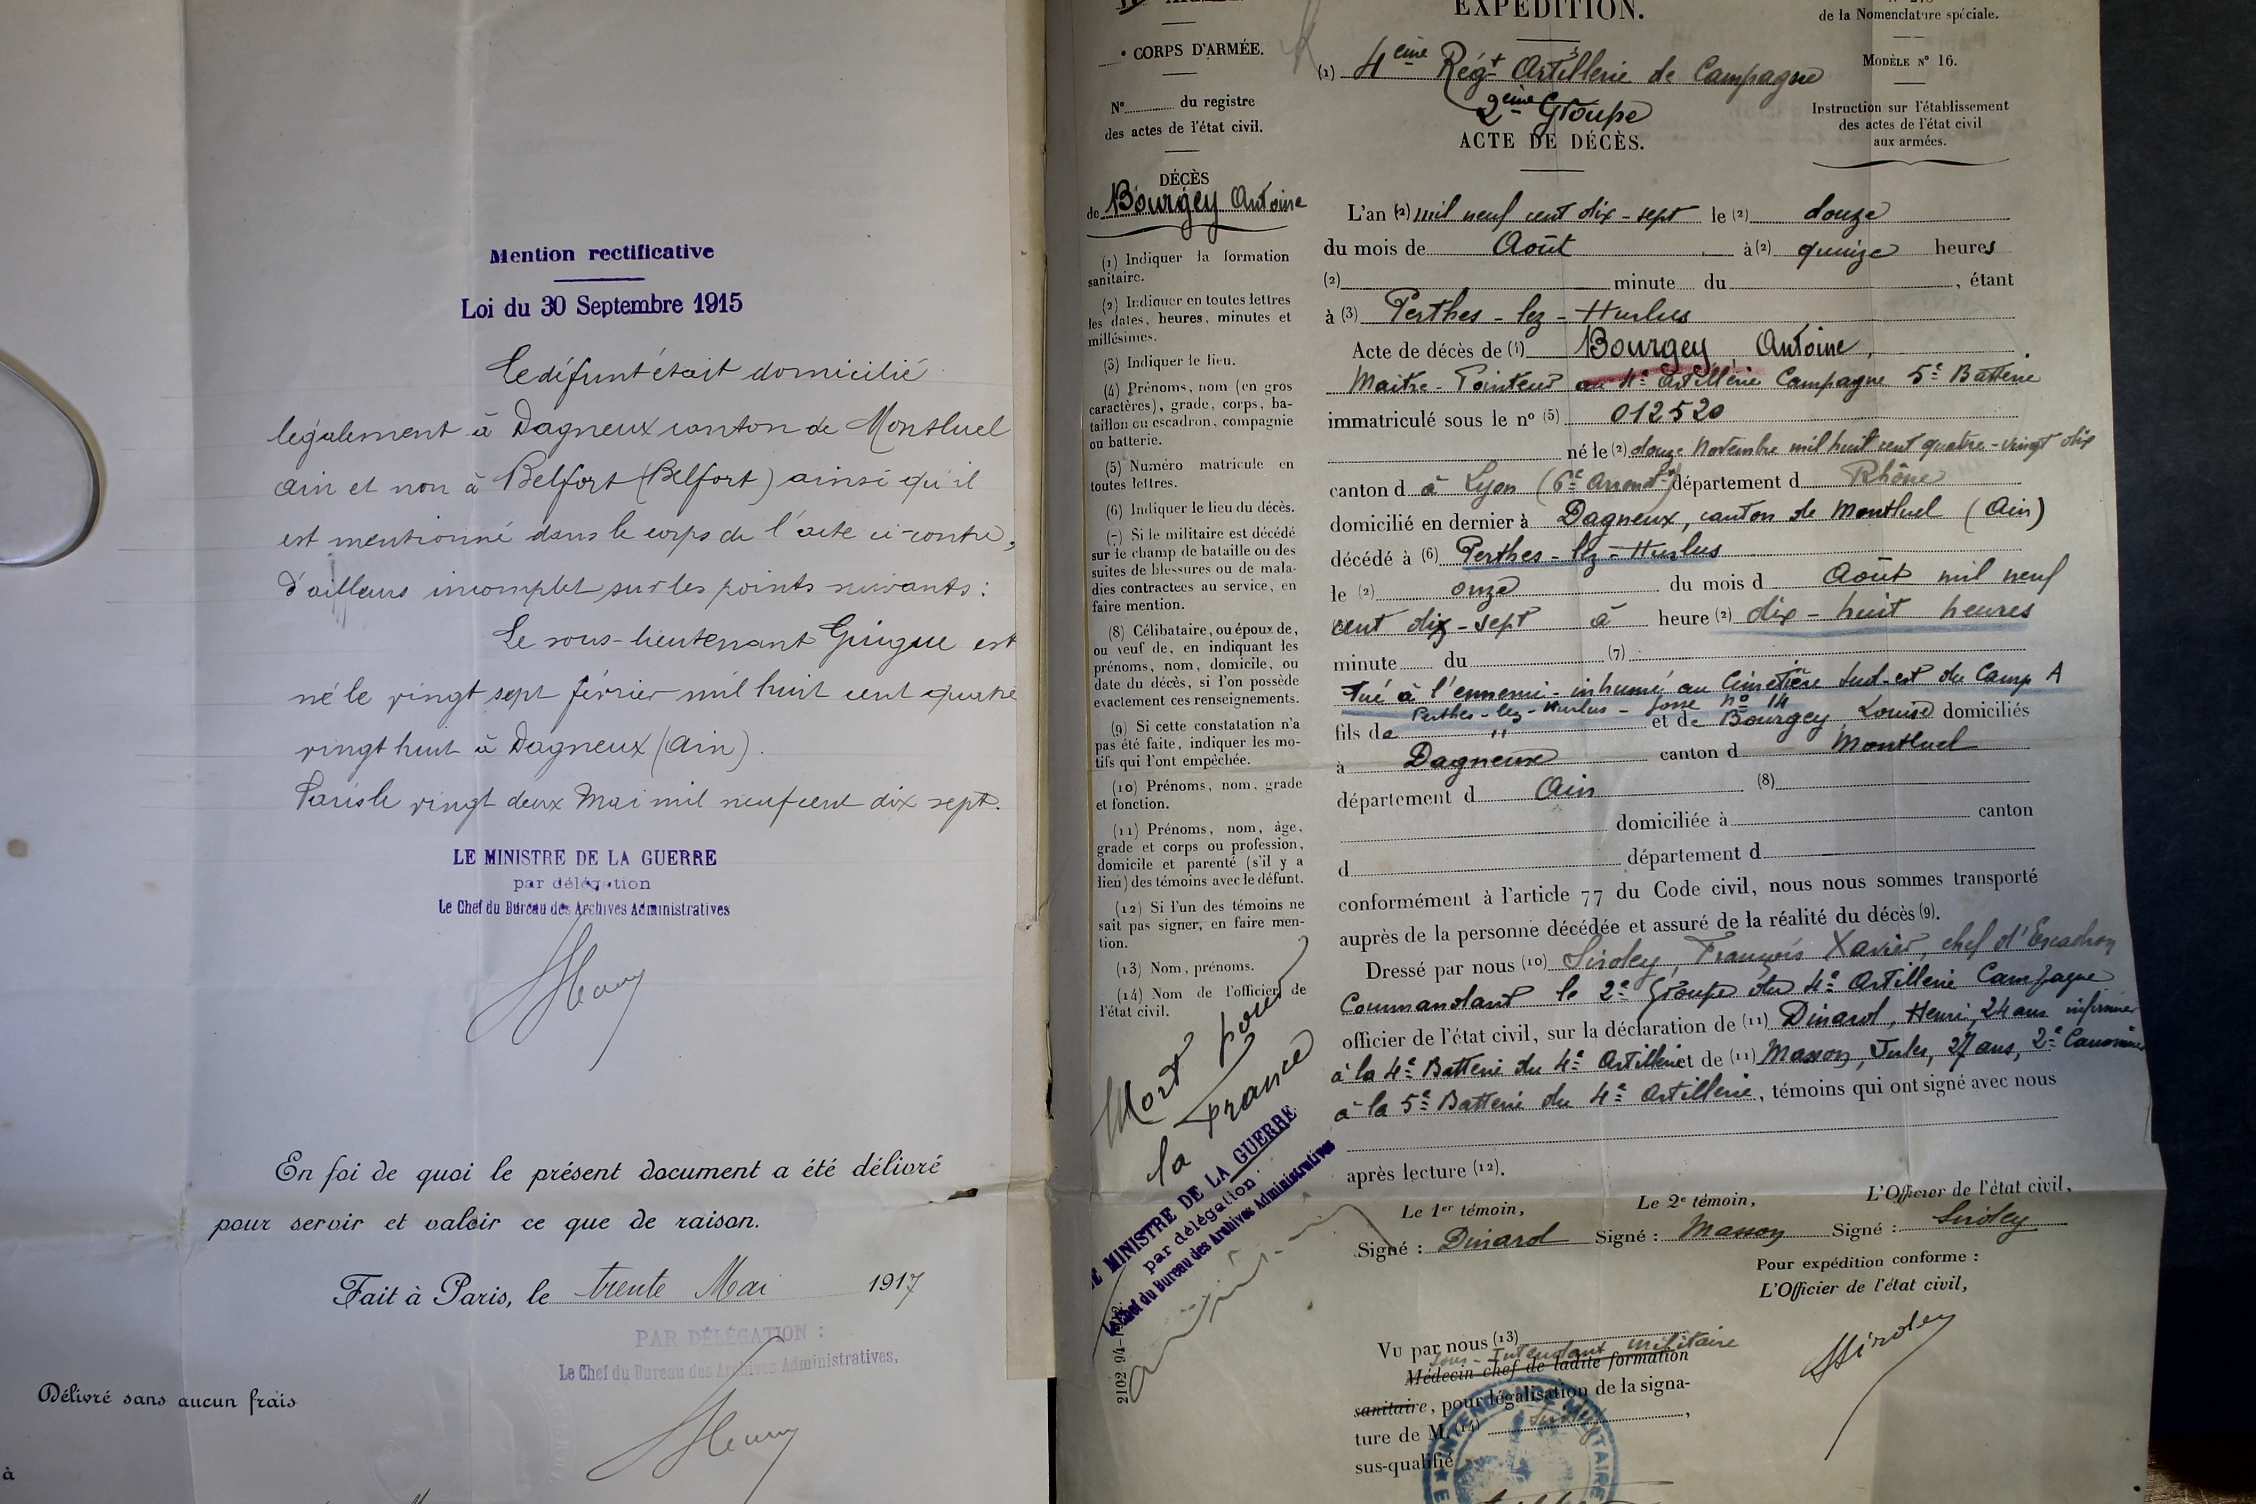 Mention rectificative
Loi du 30 Septembre 1915
Le défunt était domicilié
légalement à Dagneux canton de Montluel
Ain et non à Belfort (Belfort) ainsi qu'il
est mentionné dans le corps de l'acte ci-contre,
d'ailleurs incomplet sur les points suivants :
Le sous-lieutenant Guigue est
né le vingt sept février mil huit cent quatre
vingt huit à Dagneux (Ain).
Paris le vingt deux Mai mil neuf cent dix sept.
LE MINISTRE DE LA GUERRE
par délégation
Le Chef du Bureau des Archives Administratives
En foi de quoi le présent document a été délivré
pour servir et valoir ce que de raison.
Fait à Paris, le trente Mai 1917
PAR DÉLÉGATION :
Le Chef du Bureau des Archives Administratives,
Délivré sans aucun frais
à
CORPS D'ARMÉE.
N° du registre
des actes de l'état civil.
DÉCÈS
de Bourgey Antoine
(1) Indiquer la formation
sanitaire.
(2) Indiquer en toutes lettres
les dates, heures, minutes et
millésimes.
(3) Indiquer le lieu.
(4) Prénoms, nom (en gros
caractères), grade, corps, ba-
taillon ou escadron, compagnie
ou batterie.
(5) Numéro matricule en
toutes lettres.
(6) Indiquer le lieu du décès.
(7) Si le militaire est décédé
sur le champ de bataille ou des
suites de blessures ou de mala-
dies contractées au service, en
faire mention.
(8) Célibataire, ou époux de,
ou veuf de, en indiquant les
prénoms, nom, domicile, ou
date du décès, si l'on possède
exactement ces renseignements.
(9) Si cette constatation n'a
pas été faite, indiquer les mo-
tifs qui l'ont empêchée.
(10) Prénoms, nom, grade
et fonction.
(11) Prénoms, nom, âge,
grade et corps ou profession,
domicile et parenté (s'il y a
lieu) des témoins avec le défunt.
(12) Si l'un des témoins ne
sait pas signer, en faire men-
tion.
(13) Nom, prénoms.
(14) Nom de l'officier de
l'état civil.
Mort pour
la France
LE MINISTRE DE LA GUERRE
par délégation
Le Chef du Bureau des Archives Administratives
EXPÉDITION.
(1) 4ème Régt Artillerie de Campagne
2ème Groupe
ACTE DE DÉCÈS.
de la Nomenclature spéciale.
MODÈLE N° 16.
Instruction sur l'établissement
des actes de l'état civil
aux armées.
L'an (2) mil neuf cent dix-sept le (2) douze
du mois de Août à (2) quinze heures
(2) minute du , étant
à (3) Perthes-lez-Hurlus
Acte de décès de (4) Bourgey, Antoine,
Maitre-Pointeur au 4e Artillerie Campagne 5e Batterie
immatriculé sous le n° (5) 012520
né le (2) douze Novembre mil huit cent quatre-vingt dix
canton d à Lyon (6e Arrondt) département d Rhône
domicilié en dernier à Dagneux, canton de Montluel (Ain)
décédé à (6) Perthes-lez-Hurlus
le (2) onze du mois d Août mil neuf
cent dix-sept à heure (2) dix-huit heures
minute du (7)
tué à l'ennemi - inhumé au Cimetière Sud-est du Camp A
Perthes-lez-Hurlus - fosse n° 14
fils de " et de Bourgey Louise domiciliés
à Dagneux canton d Montluel
département d Ain (8)
domiciliée à canton
d département d
conformément à l'article 77 du Code civil, nous nous sommes transporté
auprès de la personne décédée et assuré de la réalité du décès (9).
Dressé par nous (10) Siroley, François Xavier, chef d'Escadron
Commandant le 2e Groupe du 4e Artillerie Campagne
officier de l'état civil, sur la déclaration de (11) Dinard, Henri, 24 ans infirmier
à la 4e Batterie du 4e Artillerie et de (11) Masson, Jules, 27 ans, 2e Canonnier
à la 5e Batterie du 4e Artillerie, témoins qui ont signé avec nous
après lecture (12).
Le 1er témoin, Le 2e témoin, L'Officier de l'état civil,
Signé : Dinard Signé : Masson Signé : Siroley
Pour expédition conforme :
L'Officier de l'état civil,
Siroley
Vu par nous (13)
Sous-Intendant Militaire
Médecin-chef de ladite formation
sanitaire, pour légalisation de la signa-
ture de M. (14) Siroley,
sus-qualifié
INTENDANCE MILITAIRE